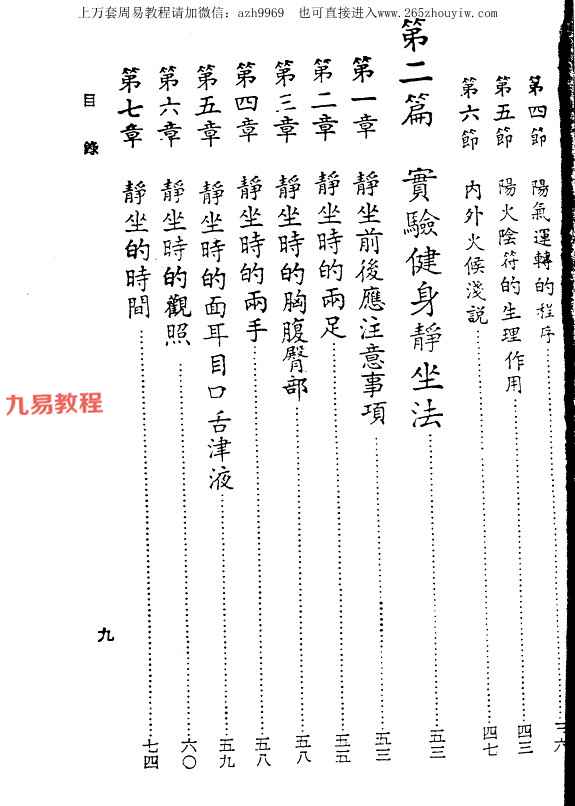 上万套周易教程请加微信：azh9969 也可直接进入www.265zhouyiw.com
第四節 陽氣運轉的程序 三六
第五節 陽火陰符的生理作用 四三
第六節 內外火候淺説 四七
第二篇 實驗健身靜坐法 五三
第一章 靜坐前後應注意事項 五三
第二章 靜坐時的兩足 五五
第三章 靜坐時的胸腹臀部 五八
第四章 靜坐時的兩手 五八
第五章 靜坐時的面耳目口舌津液 五九
第六章 靜坐時的觀照 六〇
第七章 靜坐時的時間 七四
目錄
九
九易教程